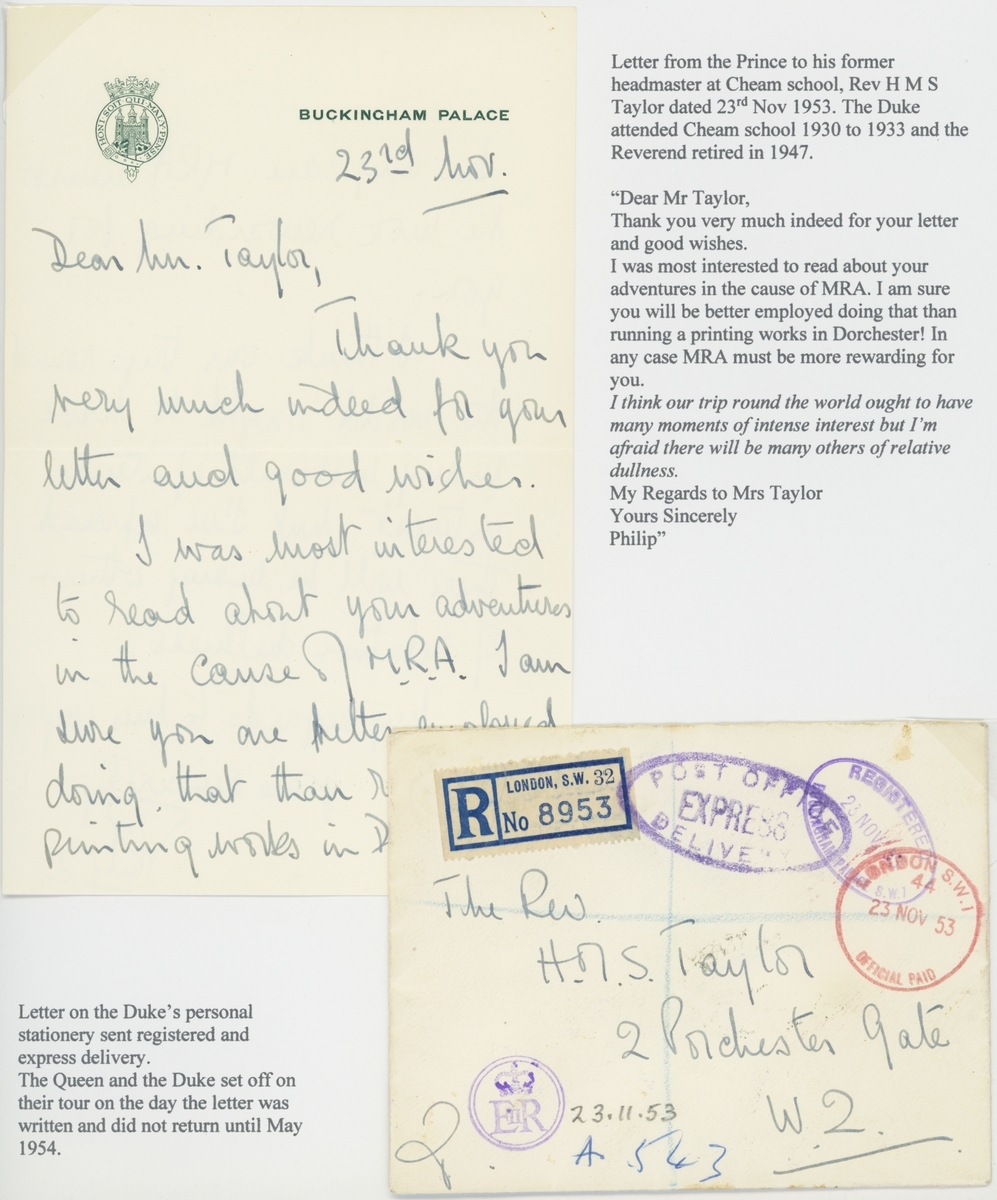 HONI SOIT QUI MAL Y PENSE
BUCKINGHAM PALACE
23rd Nov.
Dear Mr. Taylor,
Thank you
very much indeed for your
letter and good wishes.
I was most interested
to read about your adventures
in the cause of M.R.A. I am
sure you are better employed
doing that than r
printing works in D
Letter from the Prince to his former
headmaster at Cheam school, Rev H M S
Taylor dated 23rd Nov 1953. The Duke
attended Cheam school 1930 to 1933 and the
Reverend retired in 1947.
“Dear Mr Taylor,
Thank you very much indeed for your letter
and good wishes.
I was most interested to read about your
adventures in the cause of MRA. I am sure
you will be better employed doing that than
running a printing works in Dorchester! In
any case MRA must be more rewarding for
you.
I think our trip round the world ought to have
many moments of intense interest but I’m
afraid there will be many others of relative
dullness.
My Regards to Mrs Taylor
Yours Sincerely
Philip”
R
LONDON, S.W. 32
No 8953
POST OFFICE
EXPRESS
DELIVERY
REGISTERED
23 NOV
BUCKINGHAM PALACE S.W.1
LONDON S.W.1
44
23 NOV 53
OFFICIAL PAID
The Rev.
H.M.S. Taylor
2 Porchester Gate
W.2.
EIIR
23.11.53
A 543
P.
Letter on the Duke’s personal
stationery sent registered and
express delivery.
The Queen and the Duke set off on
their tour on the day the letter was
written and did not return until May
1954.